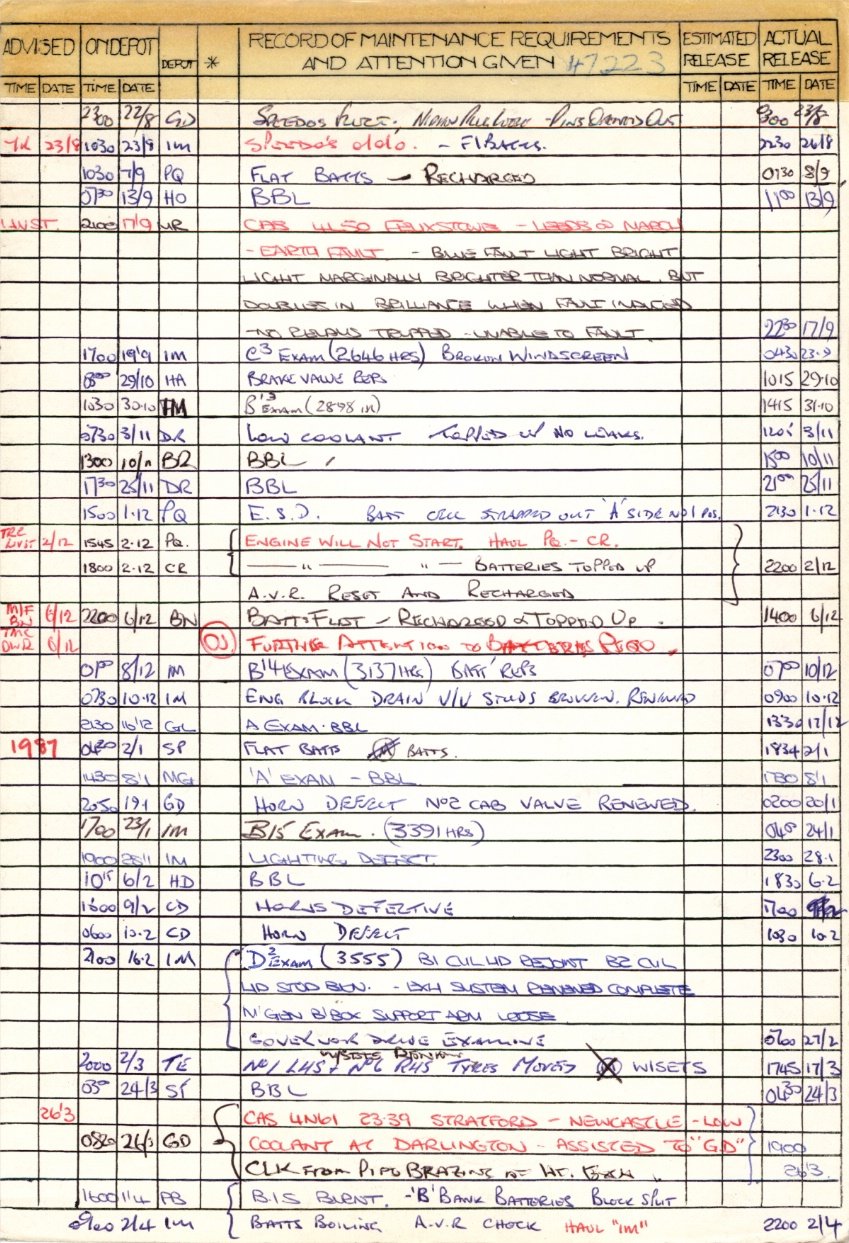 ADVISED ON DEPOT DEPOT * RECORD OF MAINTENANCE REQUIREMENTS AND ATTENTION GIVEN 47223 ESTIMATED RELEASE ACTUAL RELEASE
TIME DATE TIME DATE TIME DATE TIME DATE
2300 22/8 GD 23/8
23/8 1030 23/9 IM SPEEDO'S - F/BACKS. 2230 26/8
1030 7/9 PQ FLAT BATTS - RECHARGED 0730 8/9
0730 13/9 HO BBL 1100 13/9
2100 17/9 MR CAS 4L50 FELIXSTOWE - LEEDS @ MARCH
- EARTH FAULT - BLUE FAULT LIGHT BRIGHT
LIGHT MARGINALLY BRIGHTER THAN NORMAL. BUT
DOUBLES IN BRILLIANCE WHEN FAULT INDUCED
NO RELAYS TRIPPED - UNABLE TO FAULT. 2230 17/9
1700 19/9 IM C3 EXAM (2646 HRS) BROKEN WINDSCREEN 0430 23.9
29/10 HA BRAKE VALVE REPS 1015 29.10
1030 30.10 IM B13 EXAM (2898 1415 31.10
0730 3/11 DR LOW COOLANT TOPPED UP NO LEAKS. 3/11
1300 10/11 BR BBL 1500 10/11
1730 25/11 DR BBL 2100 25/11
1500 1.12 PQ E.S.D. BATT CELL STRAPPED OUT 'A' SIDE NO1 POS. 2130 1.12
TRC LIVST 2/12 1545 2.12 PQ. ENGINE WILL NOT START. HAUL PQ. - CR.
1800 2.12 CR — " — " — BATTERIES TOPPED UP 2200 2/12
A.V.R. RESET AND RECHARGED
M/F BN 6/12 2200 6/12 BN BATTS FLAT - RECHARGED & TOPPED UP. 1400 6/12
TMC 6/12 FURTHER ATTENTION TO BATTERIES REQD.
8/12 IM B14 EXAM (3137 HRS) BATT REPS 0700 10/12
0730 10.12 IM ENG BLOCK DRAIN V/V STUDS BROKEN. RENEWED 0900 10.12
2130 16/12 GL A EXAM. BBL 1330 17/12
1987 0430 2/1 SP FLAT BATTS BATTS. 1834 2/1
1430 8.1 MG 'A' EXAM - BBL 1730 8.1
2050 19.1 GD HORN DEFECT NO2 CAB VALVE RENEWED. 0200 20/1
1700 23/1 IM B15 EXAM. (3391 HRS) 24/1
1900 28.1 IM LIGHTING DEFECT. 2300 28.1
1015 6/2 HD BBL 1830 6.2
1600 9/2 CD HORNS DEFECTIVE 1700
0600 10.2 CD HORN DEFECT 1030 10.2
2100 16.2 IM D2 EXAM (3555) B1 CYL HD REJOINT B2 CYL
HD STUD BKN. - EXH SYSTEM RENEWED COMPLETE
N' GEN B/BOX SUPPORT ARM LOOSE
GOVERNOR DRIVE EXAMINE 0700 27/2
2000 2/3 TE NO1 LHS & NO6 RHS TYRES MOVED W/SETS 1745 17/3
24/3 SF BBL 0430 24/3
26.3 CAS 4N61 23.39 STRATFORD - NEWCASTLE - LOW
0820 26/3 GD COOLANT AT DARLINGTON - ASSISTED TO "GD" 1900
CLK FROM PIPE BRAZING AT HT. EXCH. 26.3.
1600 1.4 PB B.I.S BURNT. - 'B' BANK BATTERIES BLOCK SPLIT
0900 2/4 IM BATTS BOILING A.V.R CHECK HAUL "IM" 2200 2/4